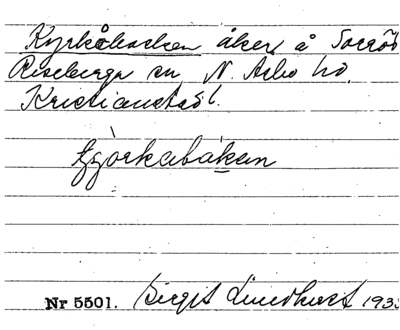 Kyrkåbacken åker å Torröd
Riseberga sn, N. Åsbo hd,
Kristianstads l.
tjỳorkabákan
Nr 5501. Birgit Lundkvist 1933